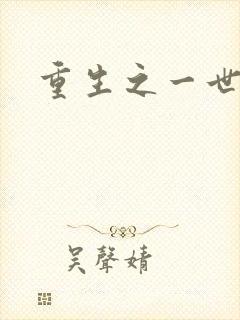 重生之一世
吴聲婧